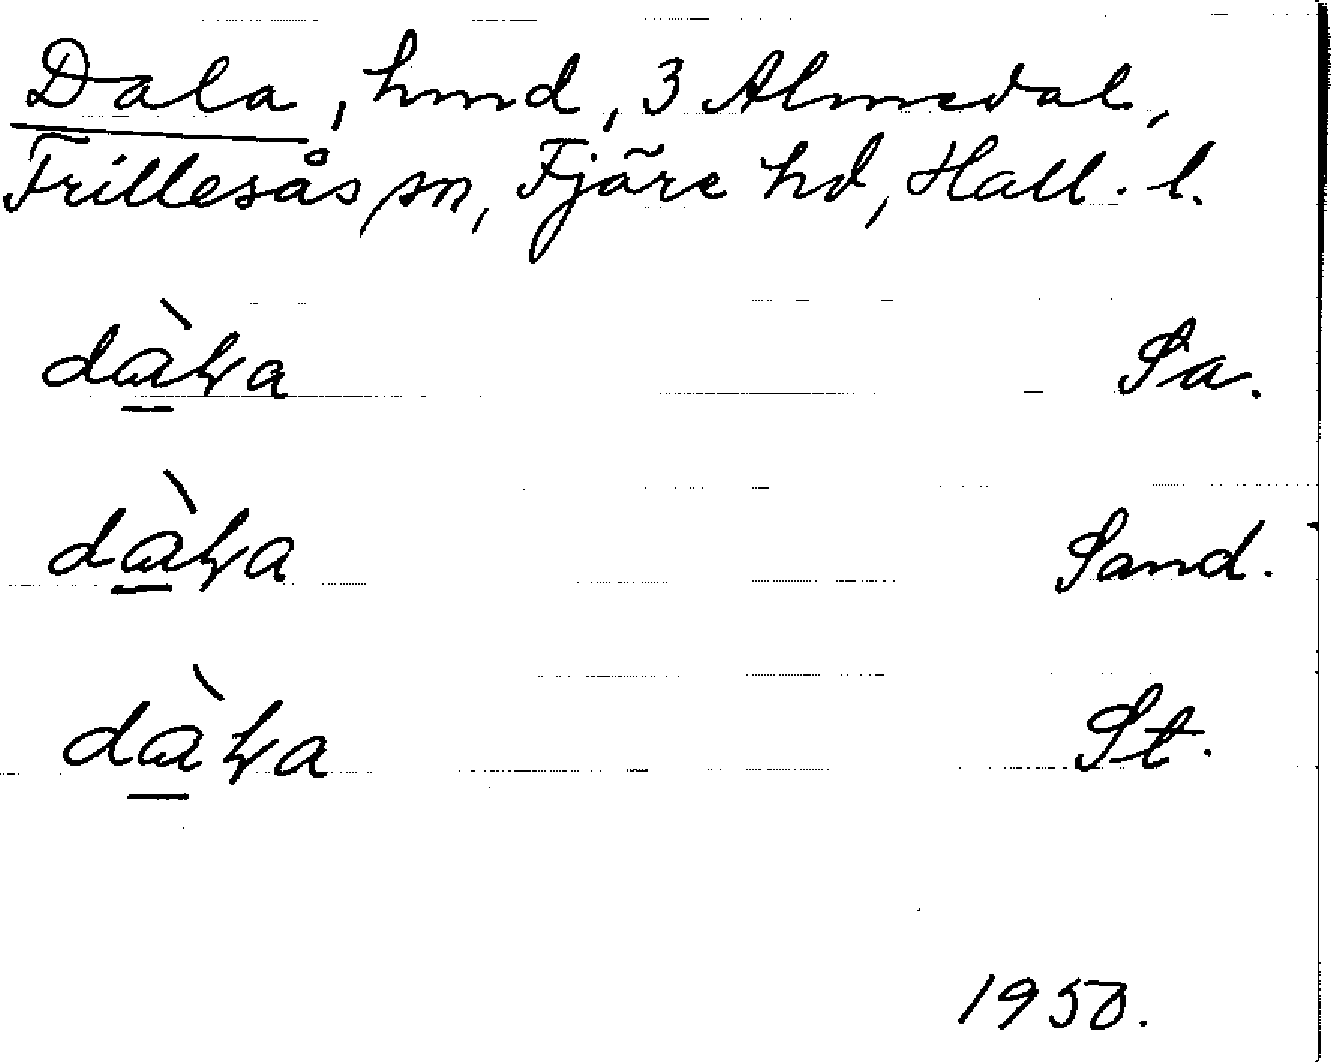 Dala, hmd, 3 Almedal,
Frillesås sn, Fjäre hd, Hall. l.
dàɽa Sa.
dàɽa Sand.
dàɽa St.
1950.